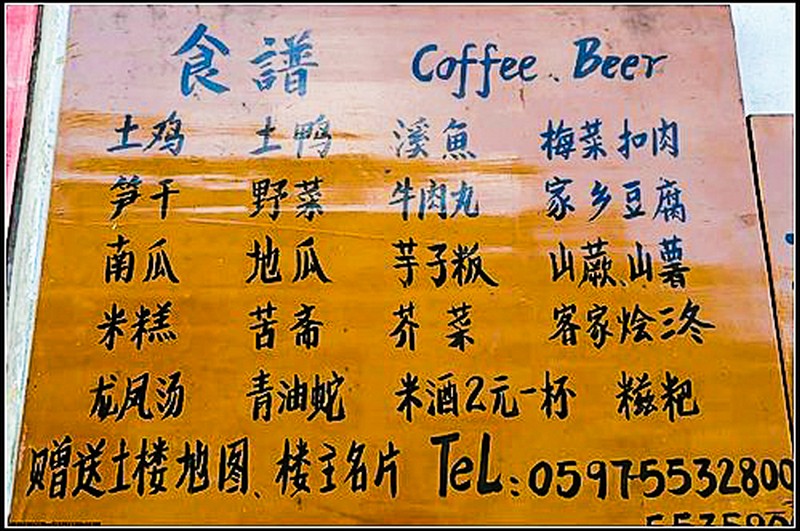 食譜 Coffee、Beer
土鸡 土鸭 溪魚 梅菜扣肉
笋干 野菜 牛肉丸 家乡豆腐
南瓜 地瓜 芋子粄 山蕨、山薯
米糕 苦斋 芥菜 客家烩三冬
龙凤汤 青油蛇 米酒2元一杯 糍粑
赠送土楼地图、楼主名片 TeL:0597-5532800